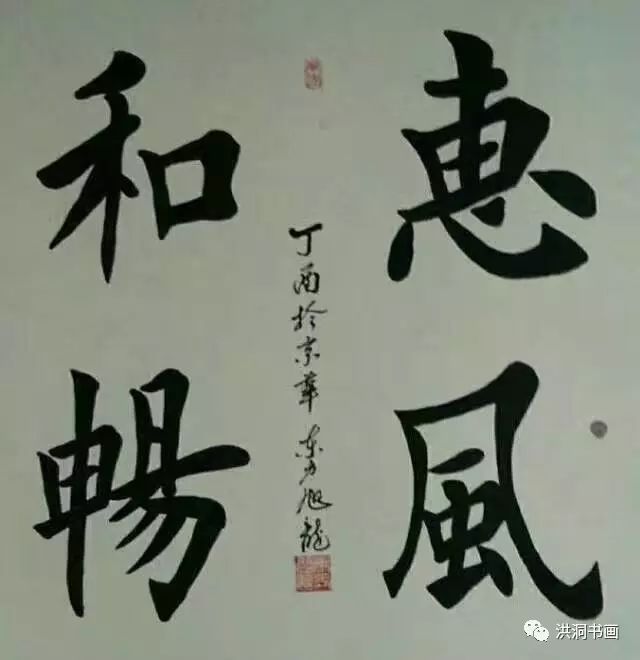 惠風
和暢
丁酉於京華 东方旭龍
洪洞书画